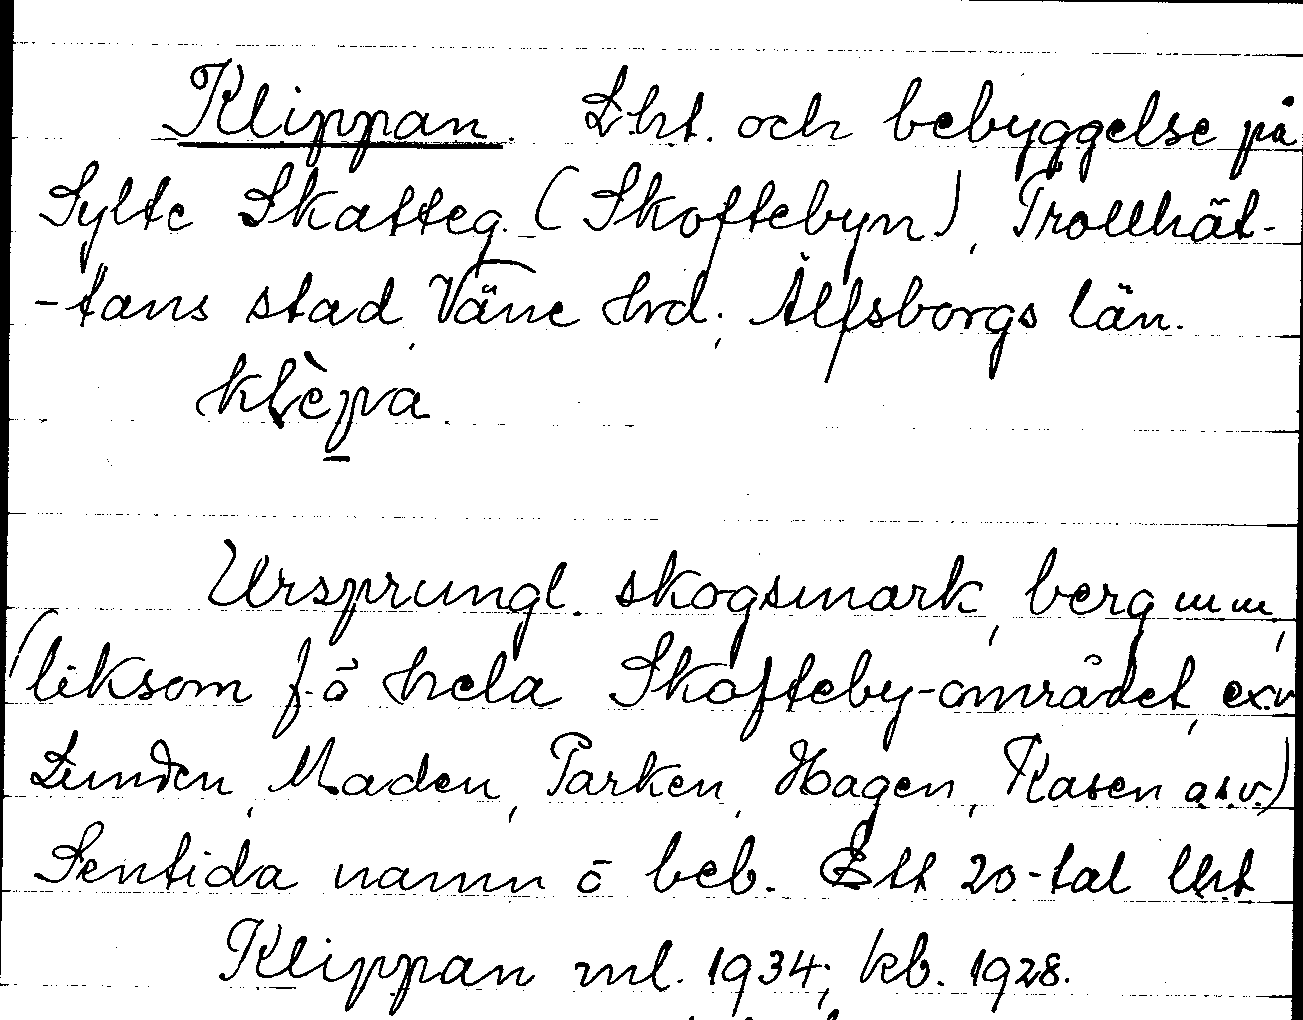 Klippan. Lht. och bebyggelse på
Sylte Skatteg. (Skoftebyn), Trollhät-
-tans stad, Väne hrd; Älfsborgs län.
klèpa.
Ursprungl. skogsmark, berg m m,
(liksom f. ö hela Skofteby-området, ex.v
Lunden, Maden, Parken, Hagen, Kasen o.s.v.)
Sentida namn o beb. Ett 20-tal lht
Klippan ml. 1934; kb. 1928.